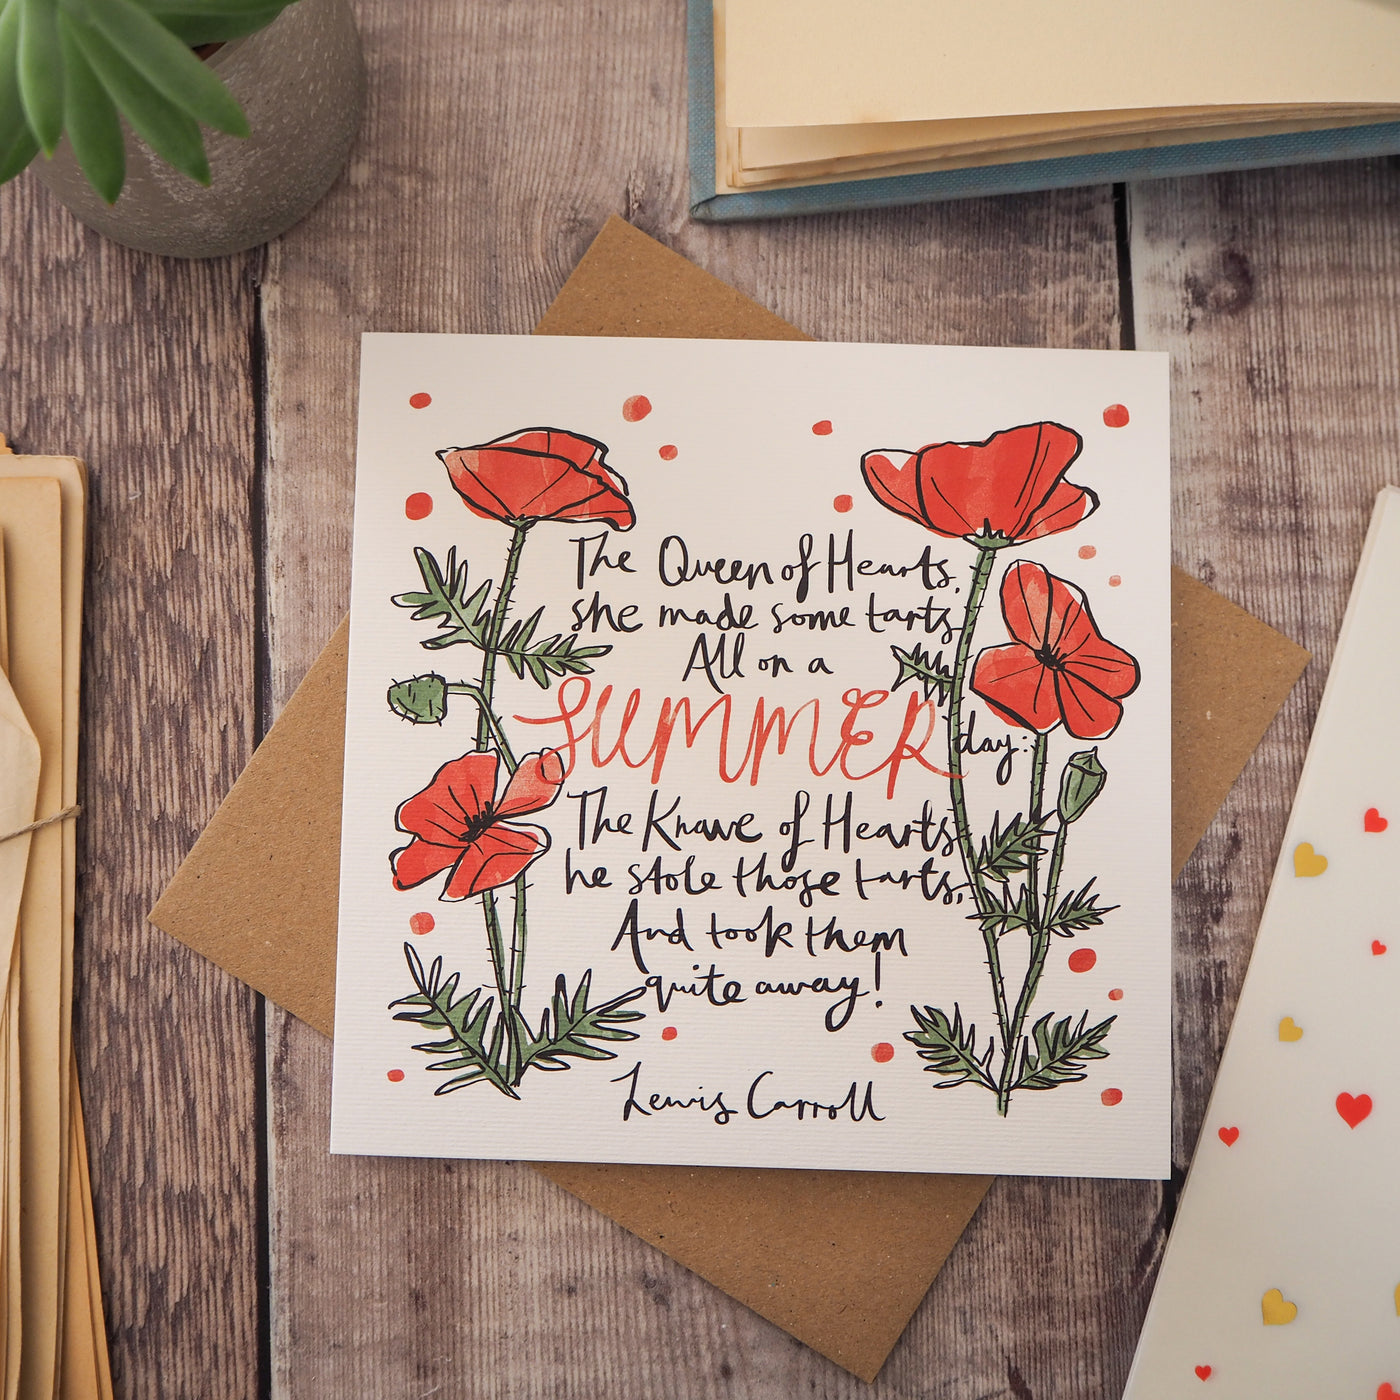 The Queen of Hearts,
she made some tarts,
All on a
SUMMER day:
The Knave of Hearts
he stole those tarts,
And took them
quite away!
Lewis Carroll